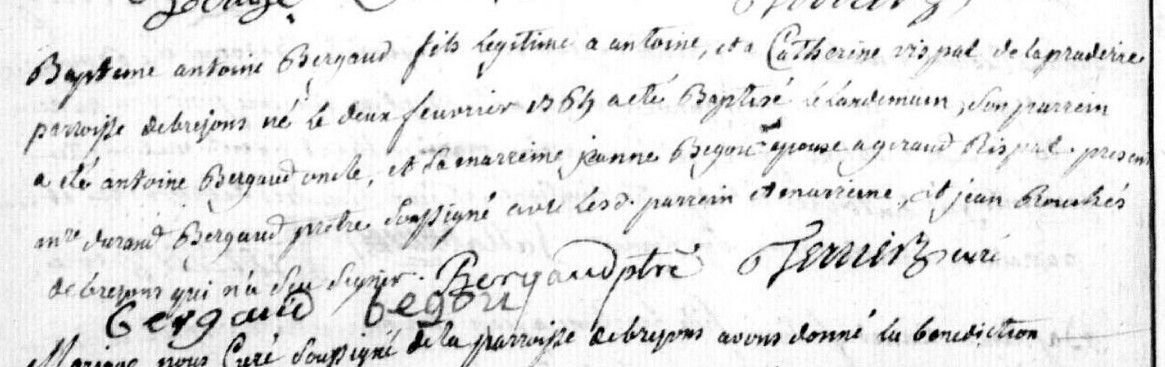 Bapteme antoine Bergaud fils legitime a antoine, et a Catherine rispal de lapraderie
parroisse debrejons né le deux feuvrier 1764 a eté Baptisé le landemain, son parrein
a eté antoine Bergaud oncle, et sa marreine jeanne Begou epouse a geraud Rispal. presens
mre durand Bergaud prêtre soussigné avec lesd. parrein et marreine, et jean
debrejons qui n'a sçu signer. Bergaud ptre Terrier curé
Bergaud Begou
Mariage nous Curé soussigné de la parroisse debrejons avons donné la benediction